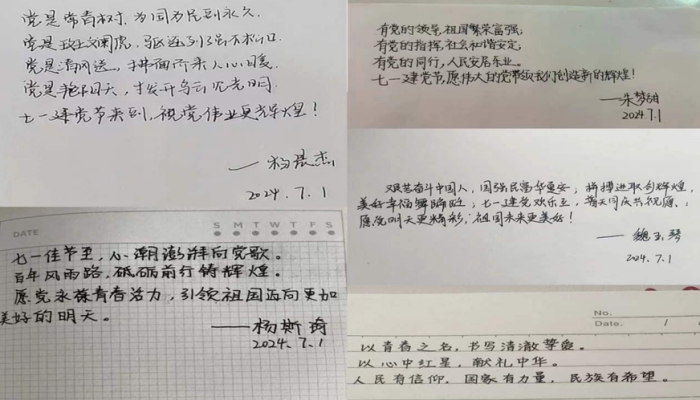 党是常青树，为国为民到永久。
党是
党是清风送，拂面而来人心暖。
党是艳阳天，拨开乌云见光明。
七一建党节来到，祝党伟业更光辉煌！
——杨晨杰
2024.7.1
有党的领导，祖国繁荣富强；
有党的指挥，社会和谐安定；
有党的同行，人民安居乐业。
七一建党节，愿伟大的党带领我们创造新的辉煌！
——朱梦甜
2024.7.1
艰苦奋斗中国人，国强民富华夏安；拼搏进取创辉煌，
美好幸福舞蹁跹；七一建党欢乐至，普天同庆共祝愿：
愿党明天更精彩，祖国未来更美好！
——魏玉琴
2024.7.1
DATE S M T W T F S
七一佳节至，心潮澎湃向党歌。
百年风雨路，砥砺前行铸辉煌。
愿党永葆青春活力，引领祖国迈向更加
美好的明天。
——杨斯琦
2024.7.1
No.
Date. /
以青春之名，书写清澈挚爱。
以心中红星，献礼中华。
人民有信仰，国家有力量，民族有希望。